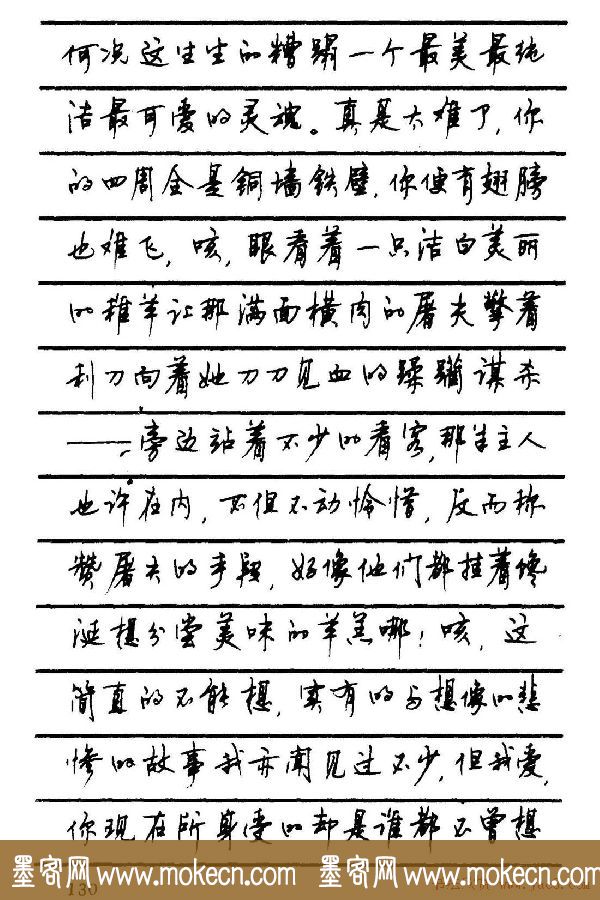 何况这生生的糟蹋一个最美最纯
洁最可爱的灵魂。真是太难了,你
的四周全是铜墙铁壁,你便有翅膀
也难飞,咳,眼看着一只洁白美丽
的稚羊让那满面横肉的屠夫擎着
利刀向着她刀刀见血的蹂躏谋杀
——旁边站着不少的看客,那羊主人
也许在内,不但不动怜惜,反而称
赞屠夫的手段,好像他们都挂着馋
涎想分尝美味的羊羔哪!咳,这
简直的不能想,实有的与想像的悲
惨的故事我亦闻见过不少,但我爱,
你现在所身受的却是谁都不曾想
墨客网 www.mokecn.com 墨客网 www.mokecn.com
130